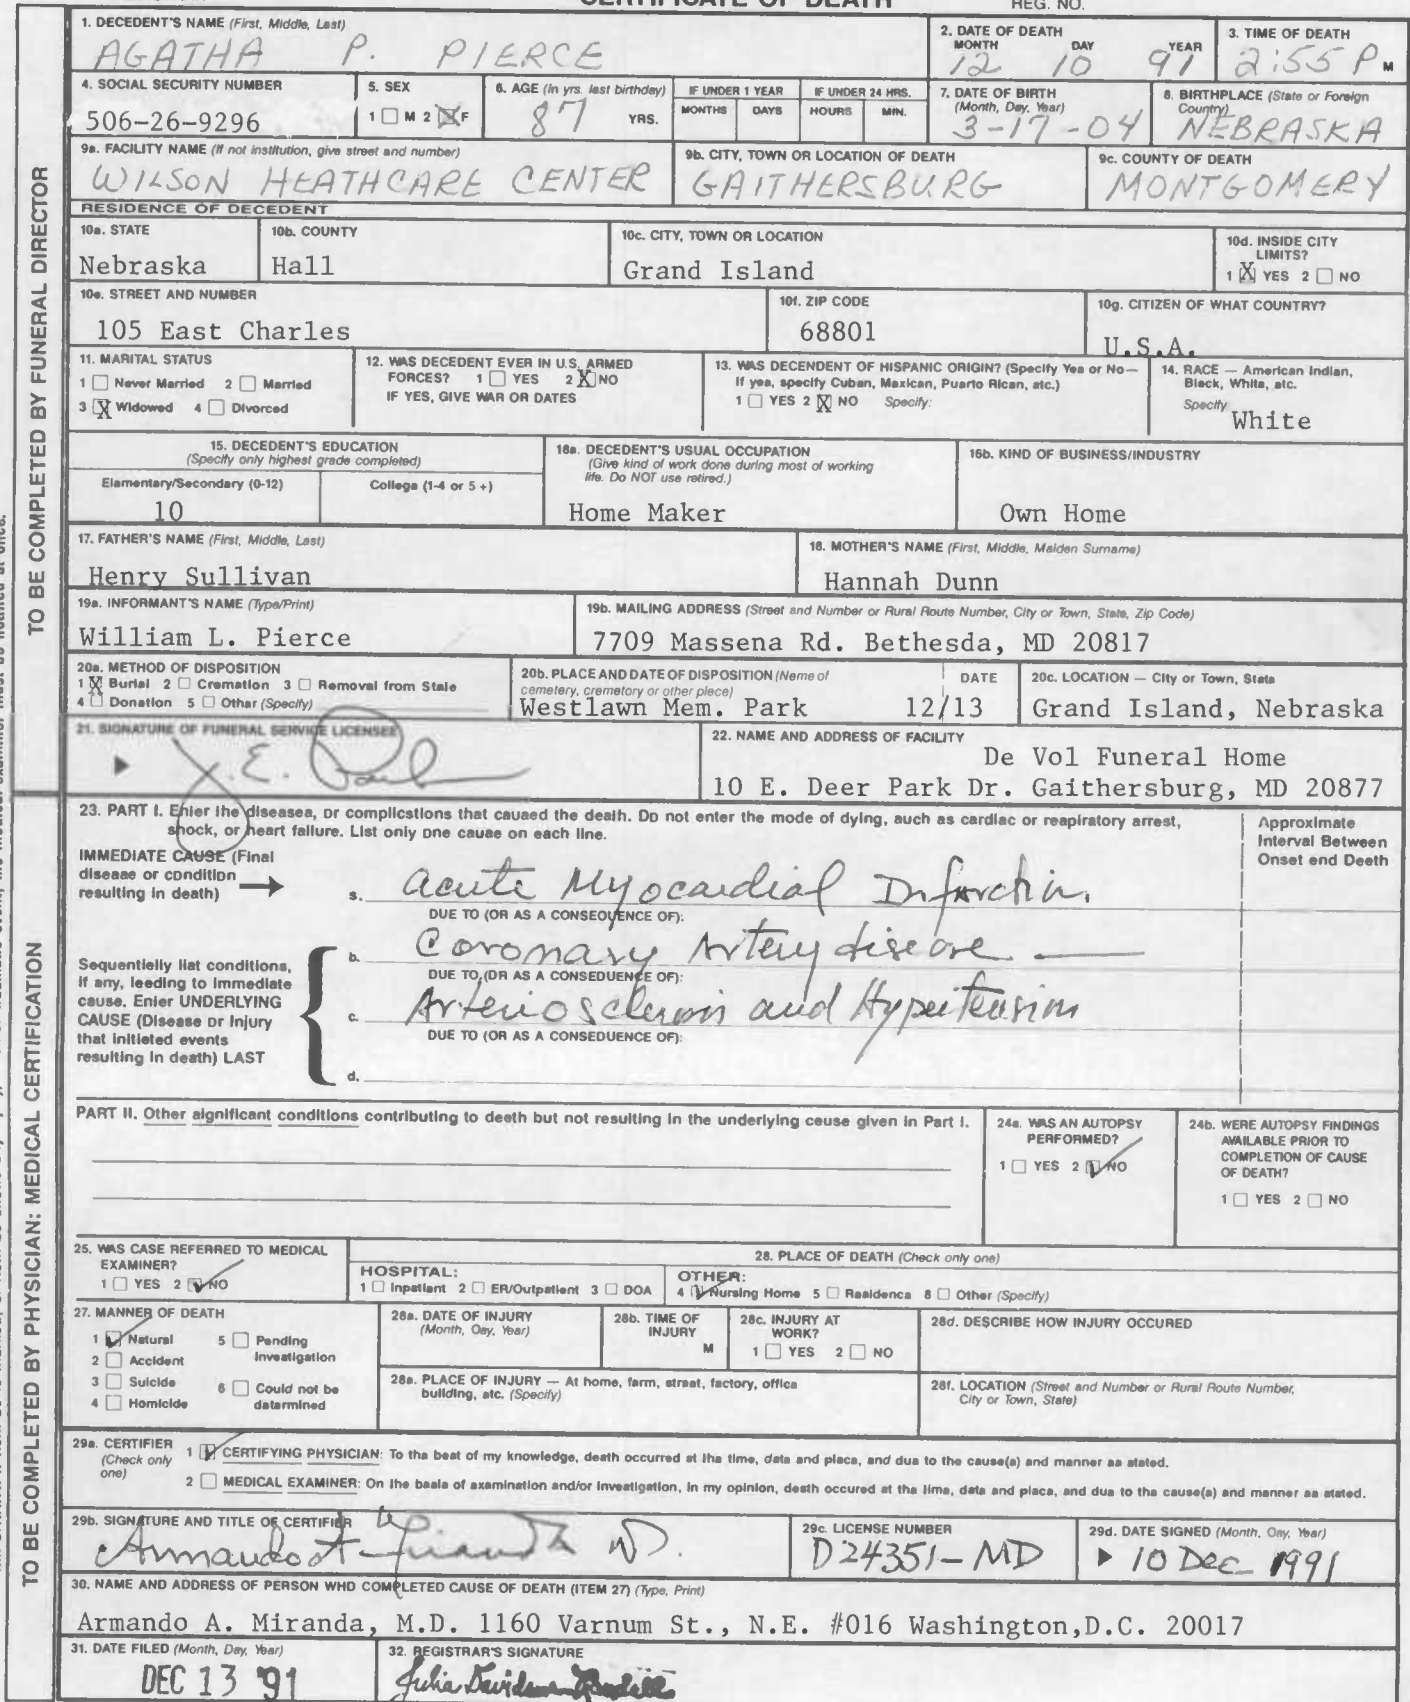 CERTIFICATE OF DEATH REG. NO.
1. DECEDENT'S NAME (First, Middle, Last)
AGATHA P. PIERCE
2. DATE OF DEATH
MONTH DAY YEAR
12 10 91
3. TIME OF DEATH
2:55 P M
4. SOCIAL SECURITY NUMBER
506-26-9296
5. SEX
1 M 2 X F
6. AGE (In yrs. last birthday)
87 YRS.
IF UNDER 1 YEAR
MONTHS DAYS
IF UNDER 24 HRS.
HOURS MIN.
7. DATE OF BIRTH
(Month, Day, Year)
3-17-04
8. BIRTHPLACE (State or Foreign
Country)
NEBRASKA
9a. FACILITY NAME (If not institution, give street and number)
WILSON HEATHCARE CENTER
9b. CITY, TOWN OR LOCATION OF DEATH
GAITHERSBURG
9c. COUNTY OF DEATH
MONTGOMERY
RESIDENCE OF DECEDENT
10a. STATE
Nebraska
10b. COUNTY
Hall
10c. CITY, TOWN OR LOCATION
Grand Island
10d. INSIDE CITY
LIMITS?
1 X YES 2 NO
10e. STREET AND NUMBER
105 East Charles
10f. ZIP CODE
68801
10g. CITIZEN OF WHAT COUNTRY?
U.S.A.
11. MARITAL STATUS
1 Never Married 2 Married
3 X Widowed 4 Divorced
12. WAS DECEDENT EVER IN U.S. ARMED
FORCES? 1 YES 2 X NO
IF YES, GIVE WAR OR DATES
13. WAS DECENDENT OF HISPANIC ORIGIN? (Specify Yes or No—
If yes, specify Cuban, Maxican, Puarto Rican, atc.)
1 YES 2 X NO Specify:
14. RACE — American Indian,
Black, White, atc.
Specify
White
15. DECEDENT'S EDUCATION
(Specify only highest grade completed)
Elamentary/Secondary (0-12) Collega (1-4 or 5 +)
10
16a. DECEDENT'S USUAL OCCUPATION
(Give kind of work done during most of working
life. Do NOT use retired.)
Home Maker
16b. KIND OF BUSINESS/INDUSTRY
Own Home
17. FATHER'S NAME (First, Middle, Last)
Henry Sullivan
18. MOTHER'S NAME (First, Middle, Maiden Surname)
Hannah Dunn
19a. INFORMANT'S NAME (Type/Print)
William L. Pierce
19b. MAILING ADDRESS (Street and Number or Rural Route Number, City or Town, State, Zip Code)
7709 Massena Rd. Bethesda, MD 20817
20a. METHOD OF DISPOSITION
1 X Burial 2 Cramation 3 Removal from Stale
4 Donation 5 Othar (Specify)
20b. PLACE AND DATE OF DISPOSITION (Name of
cemetery, crematory or other place)
DATE
Westlawn Mem. Park 12/13
20c. LOCATION — City or Town, Stata
Grand Island, Nebraska
21. SIGNATURE OF FUNERAL SERVICE LICENSEE
22. NAME AND ADDRESS OF FACILITY
De Vol Funeral Home
10 E. Deer Park Dr. Gaithersburg, MD 20877
23. PART I. Enter the diseasea, or complicstions that cauaed the death. Do not enter the mode of dying, auch as cardiac or reapiratory arrest,
shock, or heart failure. List only one cauae on each line.
Approximate
Interval Between
Onset end Deeth
IMMEDIATE CAUSE (Final
diseaae or condition
resulting in death)
a. acute Myocardial Infarction.
DUE TO (OR AS A CONSEQUENCE OF):
b. Coronary Artery disease —
DUE TO, (OR AS A CONSEDUENCE OF):
c. Arteriosclerosis and Hypertension
DUE TO (OR AS A CONSEDUENCE OF):
d.
Sequentielly liat conditions,
if any, leeding to immediate
cause. Enter UNDERLYING
CAUSE (Disease or Injury
that initieted events
resulting in death) LAST
PART II. Other aignificant conditions contributing to deeth but not resulting in the underlying ceuse given in Part I.
24a. WAS AN AUTOPSY
PERFORMED?
1 YES 2 NO
24b. WERE AUTOPSY FINDINGS
AVAILABLE PRIOR TO
COMPLETION OF CAUSE
OF DEATH?
1 YES 2 NO
25. WAS CASE REFERRED TO MEDICAL
EXAMINER?
1 YES 2 NO
26. PLACE OF DEATH (Check only one)
HOSPITAL:
1 Inpatiant 2 ER/Outpatlent 3 DOA
OTHER:
4 Nursing Home 5 Raaidenca 6 Other (Specify)
27. MANNER OF DEATH
1 Natural 5 Pending
Investigation
2 Accident
3 Suicide 6 Could not be
datarmined
4 Homicide
28a. DATE OF INJURY
(Month, Day, Year)
28b. TIME OF
INJURY
M
28c. INJURY AT
WORK?
1 YES 2 NO
28d. DESCRIBE HOW INJURY OCCURED
28a. PLACE OF INJURY — At homa, farm, atraat, factory, offica
building, atc. (Specify)
28f. LOCATION (Street and Number or Rural Route Number,
City or Town, State)
29a. CERTIFIER
(Check only
one)
1 CERTIFYING PHYSICIAN: To tha beat of my knowledge, death occurred at tha time, data and placa, and dua to the cause(a) and manner aa atated.
2 MEDICAL EXAMINER: On tha baala of axamination and/or Investigation, in my opinion, death occured at tha lima, data and placa, and dua to tha cause(a) and manner aa atated.
29b. SIGNATURE AND TITLE OF CERTIFIER
Armando A Miranda MD.
29c. LICENSE NUMBER
D24351-MD
29d. DATE SIGNED (Month, Day, Year)
10 Dec 1991
30. NAME AND ADDRESS OF PERSON WHO COMPLETED CAUSE OF DEATH (ITEM 27) (Type, Print)
Armando A. Miranda, M.D. 1160 Varnum St., N.E. #016 Washington,D.C. 20017
31. DATE FILED (Month, Day, Year)
DEC 13 '91
32. REGISTRAR'S SIGNATURE
Julia Davidson
TO BE COMPLETED BY FUNERAL DIRECTOR
TO BE COMPLETED BY PHYSICIAN: MEDICAL CERTIFICATION